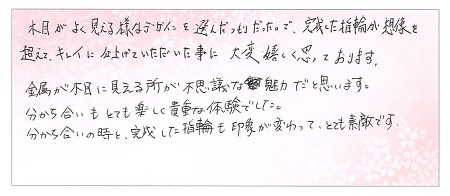 木目がよく見える様なデザインを選んだつもりだったので、完成した指輪が想像を
超えて、キレイに仕上げていただいた事に 大変嬉しく思っております。
金属が木目に見える所が不思議な魅力だと思います。
分かち合いもとても楽しく貴重な体験でした。
分かち合いの時と、完成した指輪も印象が変わって、とても素敵です。